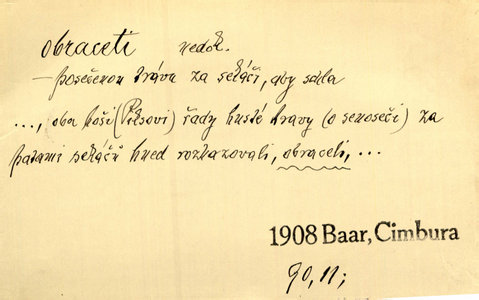 obraceti nedok.
— posečenou trávu za sekáči, aby schla
..., oba hoši (Piksovi) řady husté travy (o senoseči) za
patami sekáčů hned rozhazovali, obraceli, ...
1908 Baar, Cimbura
90, 11;